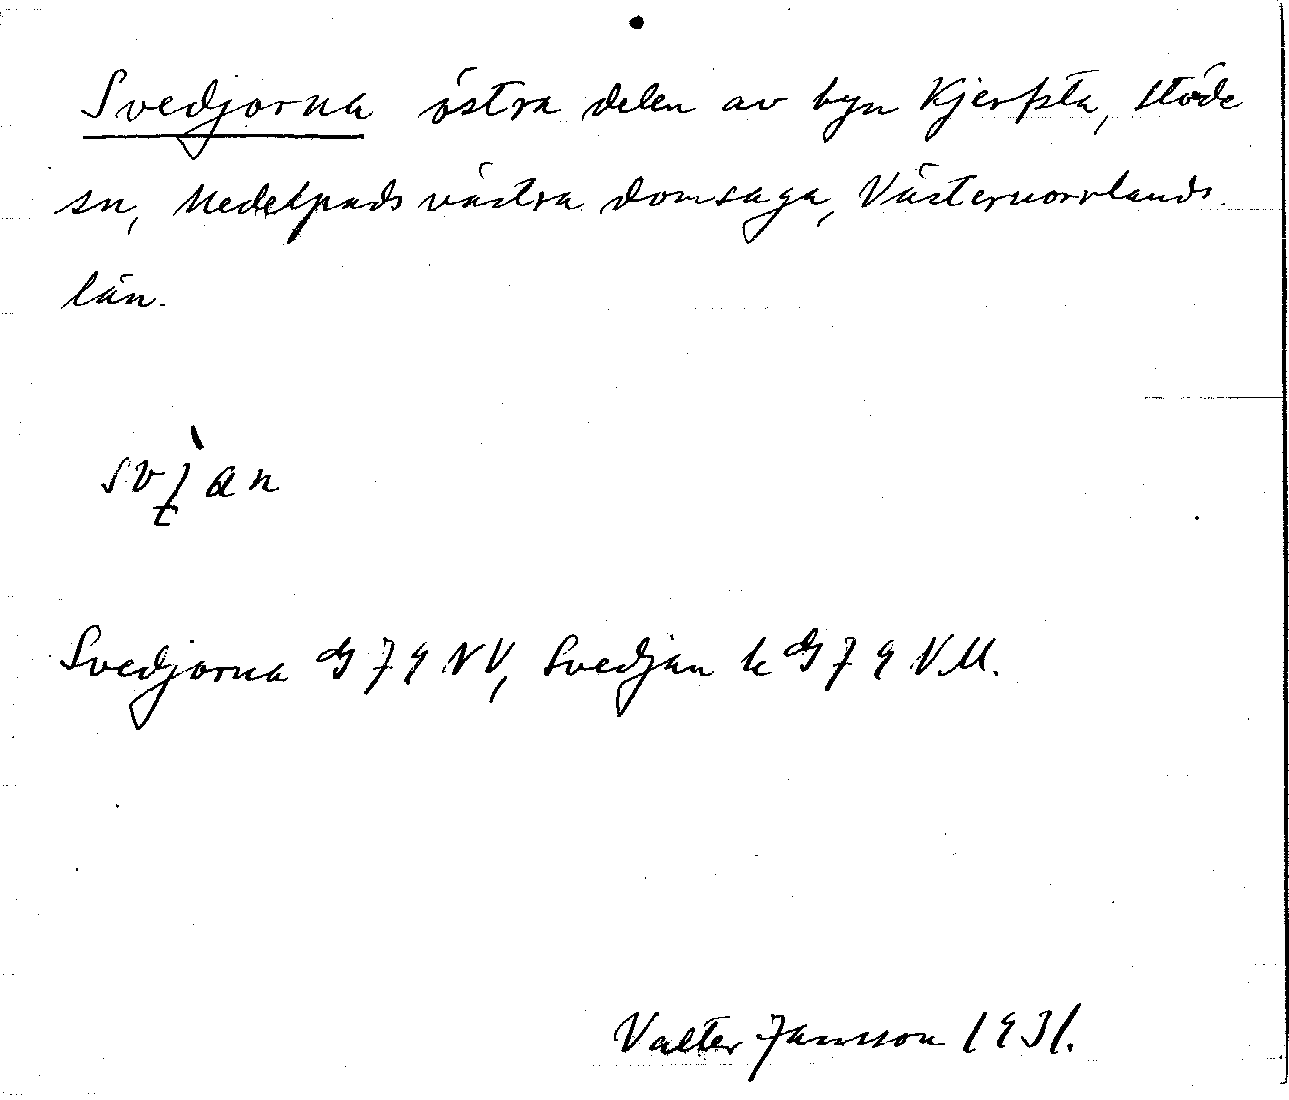 Svedjorna östra delen av byn Kjerfsta, Stöde
sn, Medelpads västra domsaga, Västernorrlands
län.
Svedjorna G 79 NV, Svedjan k G 79 V.M.
Valter Jansson 1931.